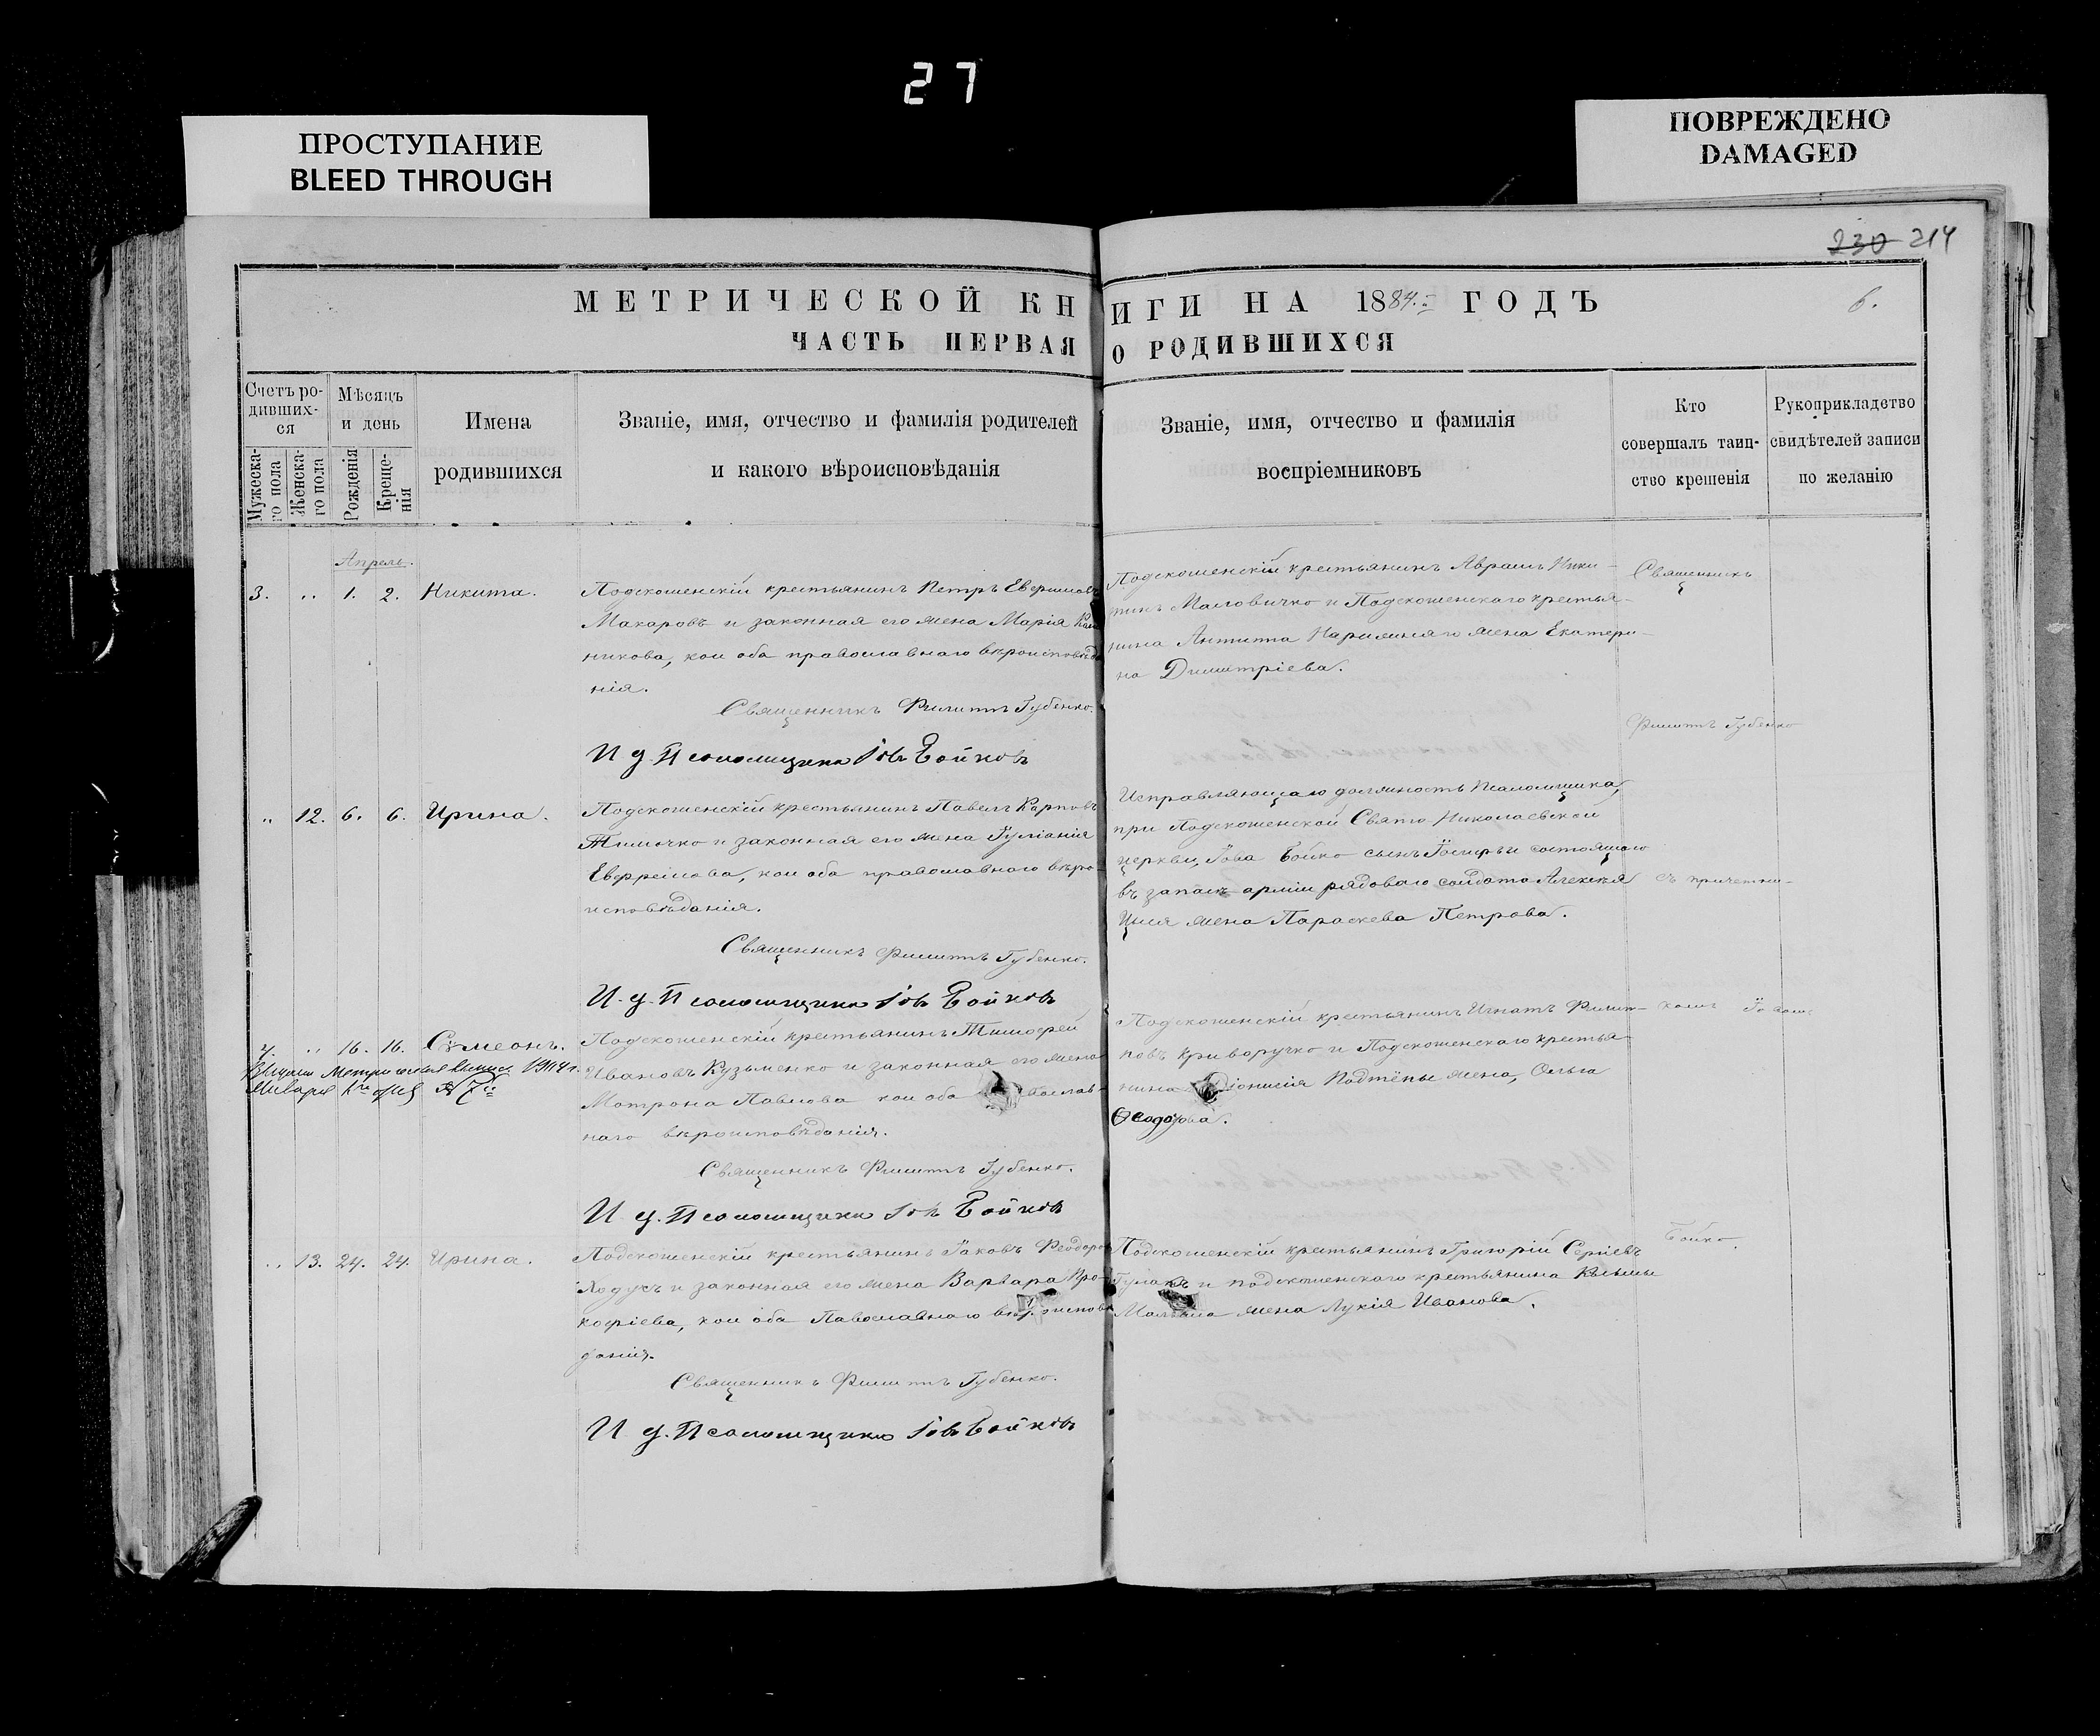 27
ПРОСТУПАНИЕ
BLEED THROUGH
ПОВРЕЖДЕНО
DAMAGED
230 214
МЕТРИЧЕСКОЙ КНИГИ НА 1884 ГОДЪ
6.
ЧАСТЬ ПЕРВАЯ О РОДИВШИХСЯ
Счетъ ро-
дивших-
ся
Мужеска-
го пола
Женска-
го пола
Мѣсяцъ
и день
Рожденія
Креще-
нія
Имена
родившихся
Званіе, имя, отчество и фамилія родителей
и какого вѣроисповѣданія
Званіе, имя, отчество и фамилія
воспріемниковъ
Кто
совершалъ таин-
ство крещенія
Рукоприкладство
свидѣтелей записи
по желанію
Апрель.
3. „ 1. 2. Никита.
Подскошенскій крестьянинъ Петръ
Макаровъ и законная его жена Марія
никова, кои оба православнаго вѣроисповѣда
нія.
Священникъ Филиппъ Губенко.
И д. Псаломщика Іовъ Бойковъ
Подскошенскій крестьянинъ Авраамъ Ники-
тинъ и Подскошенскаго крестья-
нина Антипа жена Екатери-
на Димитріева.
Священникъ
Филиппъ Губенко
„ 12. 6. 6. Ирина.
Подскошенскій крестьянинъ Павелъ Карповъ
Тимочко и законная его жена Гуліанія
кои оба православнаго вѣро-
исповѣданія.
Священникъ Филиппъ Губенко.
И. д. Псаломщика Іовъ Бойковъ
Исправляющаго должность Псаломщика,
при Подскошенской Свято-Николаевской
церкви, Іова Бойко сынъ и состоящаго
въ запасѣ арміи рядоваго солдата Алексѣя
жена Параскева Петрова.
съ причетни-
4. „ 16. 16. Сѵмеонъ.
Метрическая выпись 1914 г.
Января
Подскошенскій крестьянинъ Тимофей
Ивановъ Кузьменко и законная его жена
Матрона Павлова кои оба православ-
наго вѣроисповѣданія.
Священникъ Филиппъ Губенко.
И д. Псаломщика Іовъ Бойковъ
Подскошенскій крестьянинъ Игнатъ Филип-
повъ Криворучко и Подскошенскаго крестья-
нина жена, Ольга
Ѳеодорова.
комъ Іовомъ
„ 13. 24. 24. Ирина.
Подскошенскій крестьянинъ Іаковъ Феодоров
и законная его жена Варвара Про-
кофіева, кои оба Павославнаго вѣроисповѣ
данія.
Священникъ Филиппъ Губенко.
И д. Псаломщика Іовъ Бойковъ
Подскошенскій крестьянинъ Григорій Сергіевъ
и подскошенскаго крестьянина
жена Лукія Иванова.
Бойко.